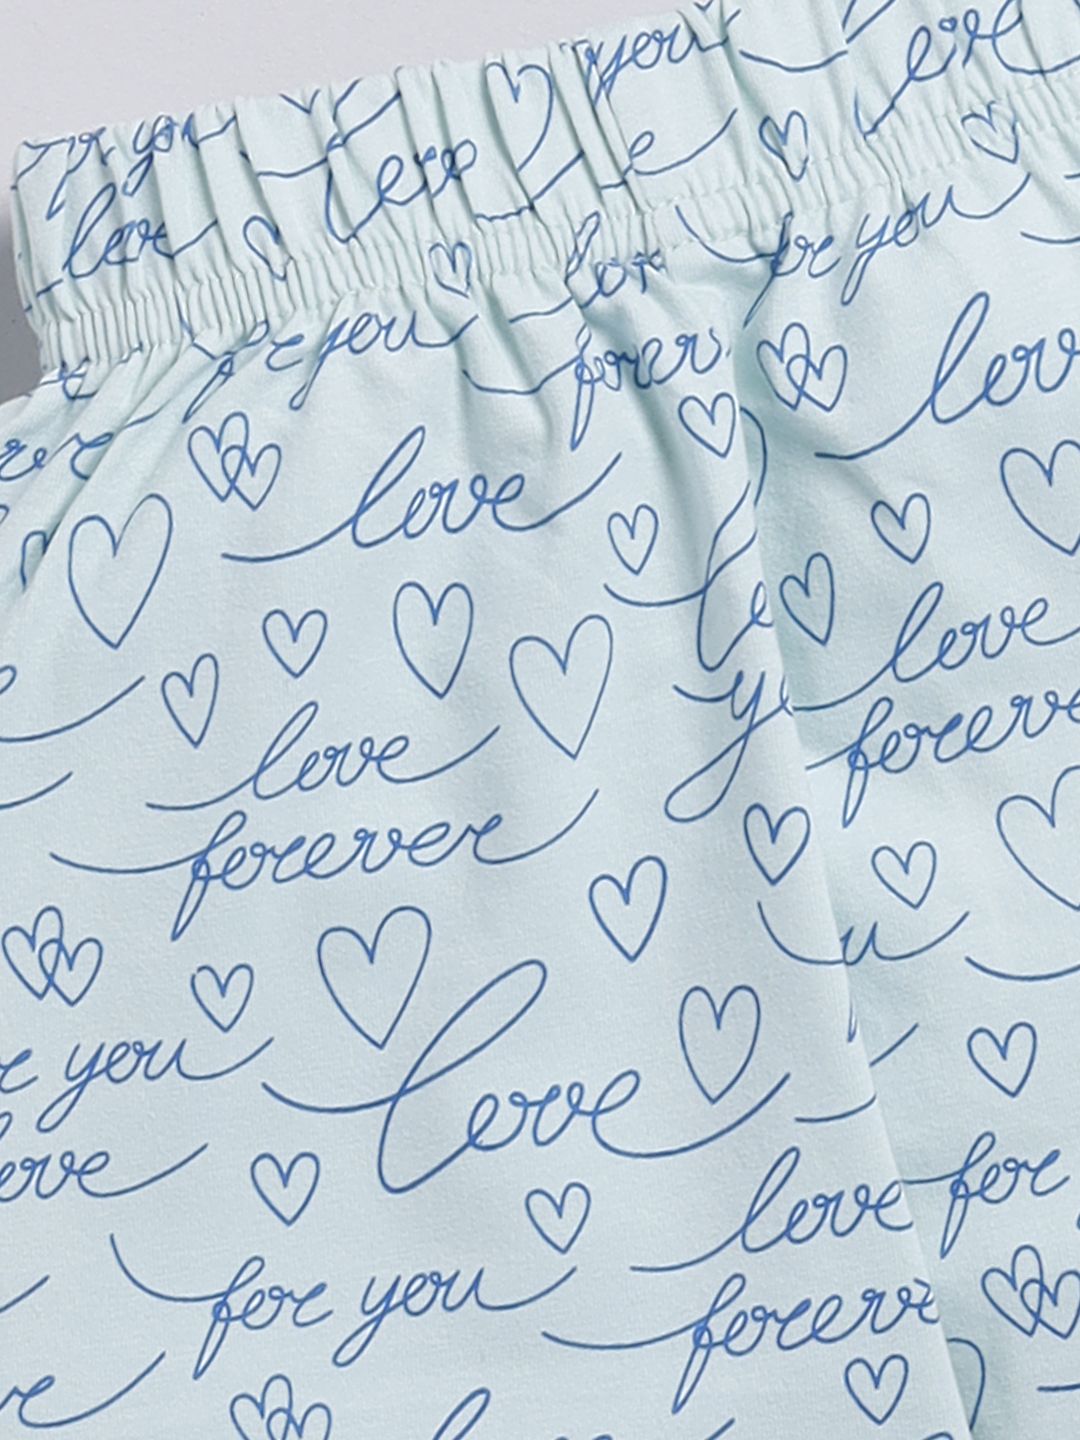 for you
love
love
you
love
for you
for you
love
forever
love
love
love
love
forever
forever
you
love
love
for you
for
forever